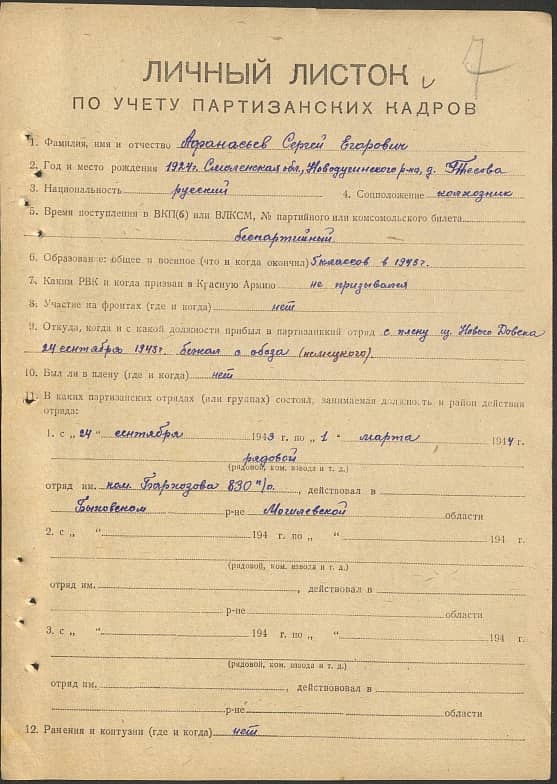 7
ЛИЧНЫЙ ЛИСТОК
ПО УЧЕТУ ПАРТИЗАНСКИХ КАДРОВ
1. Фамилия, имя и отчество Афанасьев Сергей Егарович
2. Год и место рождения 1927г. Смоленская обл., Новодугинского р-на, д. Тесова
3. Национальность русский 4. Соцположение колхозник
5. Время поступления в ВКП(б) или ВЛКСМ, № партийного или комсомольского билета
беспартийный
6. Образование: общее и военное (что и когда окончил) 5 классов в 1943г.
7. Каким РВК и когда призван в Красную Армию не призывался
8. Участие на фронтах (где и когда) нет
9. Откуда, когда и с какой должности прибыл в партизанский отряд с плену Нового Довска
24 сентября 1943г. бежал с обоза (немецкого).
10. Был ли в плену (где и когда) нет
11. В каких партизанских отрядах (или группах) состоял, занимаемая должность и район действия
отряда:
1. с „ 24 “ сентября 1943 г. по „ 1 “ марта 1944 г.
рядовой
(рядовой, ком. взвода и т. д.)
отряд им. ком. 830 п/о. , действовал в
Быховском р-не Могилевской области
2. с „ “ 194 г. по „ “ 194 г.
(рядовой, ком. взвода и т. д.)
отряд им. , действовал в
р-не области
3. с „ “ 194 г. по „ “ 194 г.
(рядовой, ком. взвода и т. д.)
отряд им. , действововал в
р-не области
12. Ранения и контузии (где и когда) нет